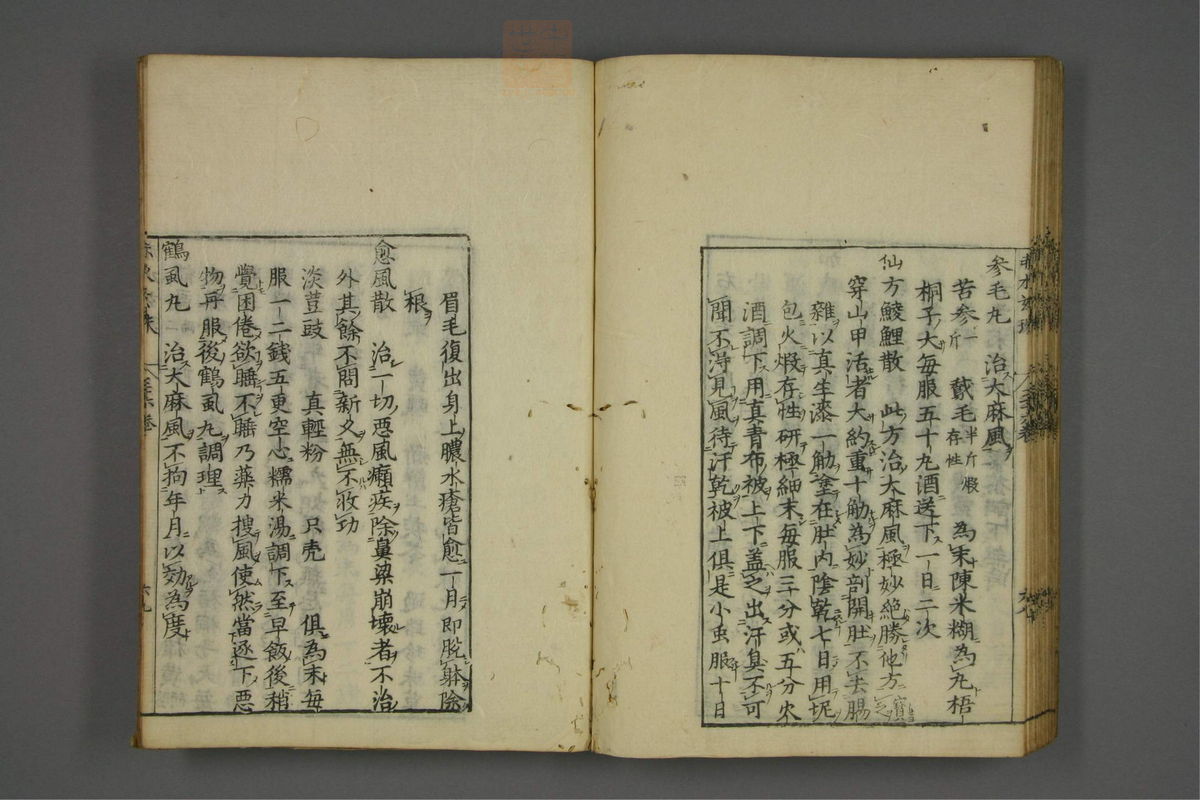 参毛丸 治大麻風
苦参一斤 戴毛半斤煅存性 為末陳米糊為丸梧
桐子大每服五十丸酒送下一日二次
仙方鯪鯉散 此方治大麻風極妙絶勝他方
穿山甲活者大約重十觔為妙剖開肚不去腸
雜以真生漆一觔塗在肚内陰乾七日用坭
包火煅存性研極細末每服三分或五分火
酒調下用真青布被上下盖之出汗臭不可
聞不淂見風待汗乾被上俱是小虫服十日
眉毛復出身上膿水瘡皆愈一月即脫躰除
根
愈風散 治一切恶風癲疾除鼻梁崩壞者不治
外其餘不問新久無不收功
淡荳豉 真輕粉 只壳 俱為末每
服一二錢五更空心糯米湯調下至早飯後稍
覺困倦欲睡不睡乃藥力搜風使然當逐下恶
物再服後鶴虱丸調理
鶴虱丸 治大麻風不拘年月以効為度